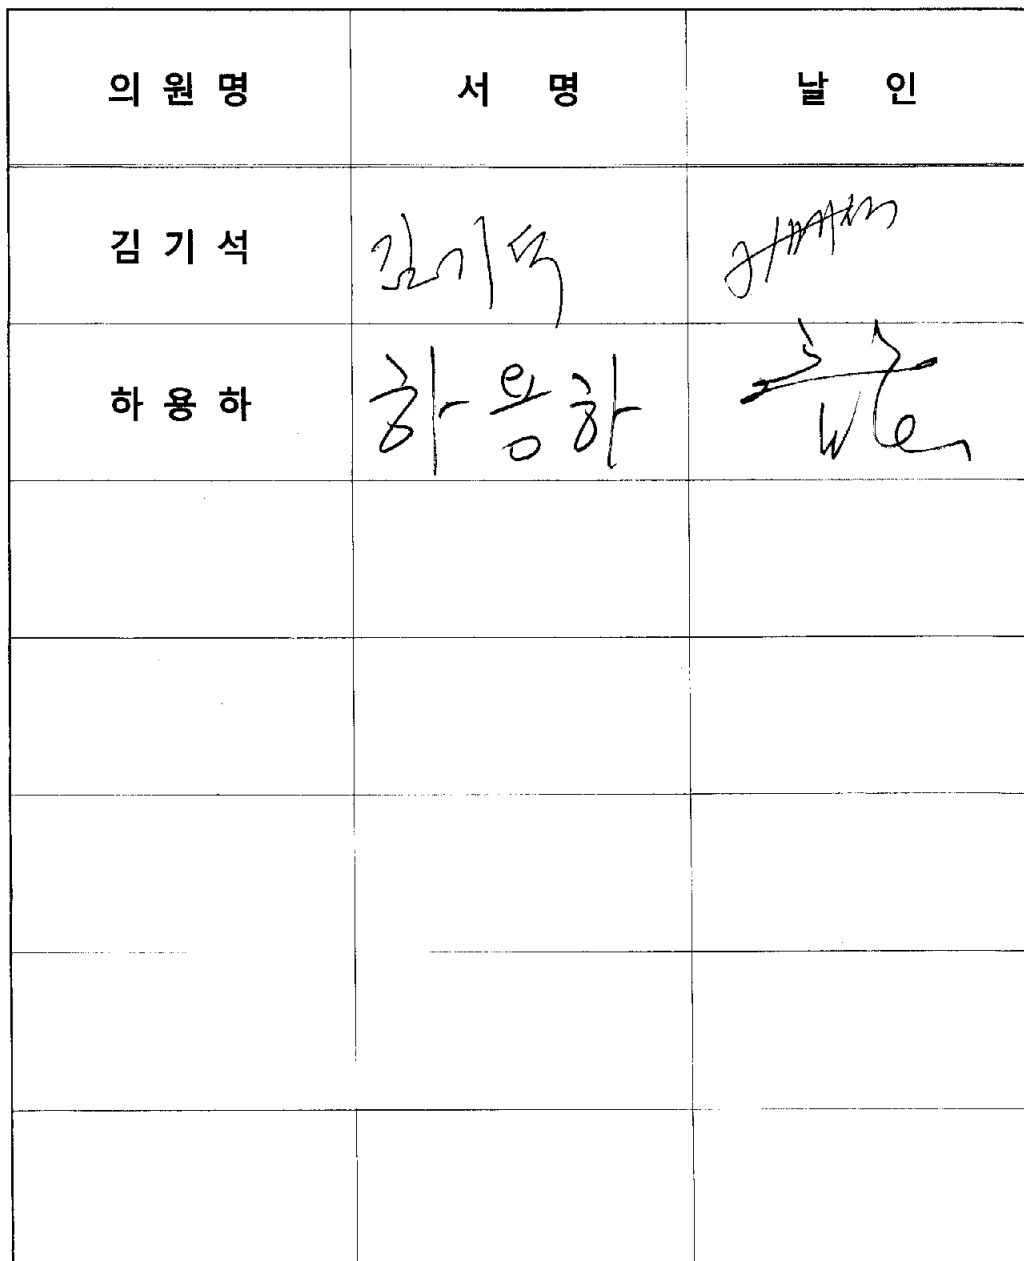 의 원 명 서 명 날 인
김 기 석 김기석
하 용 하 하용하